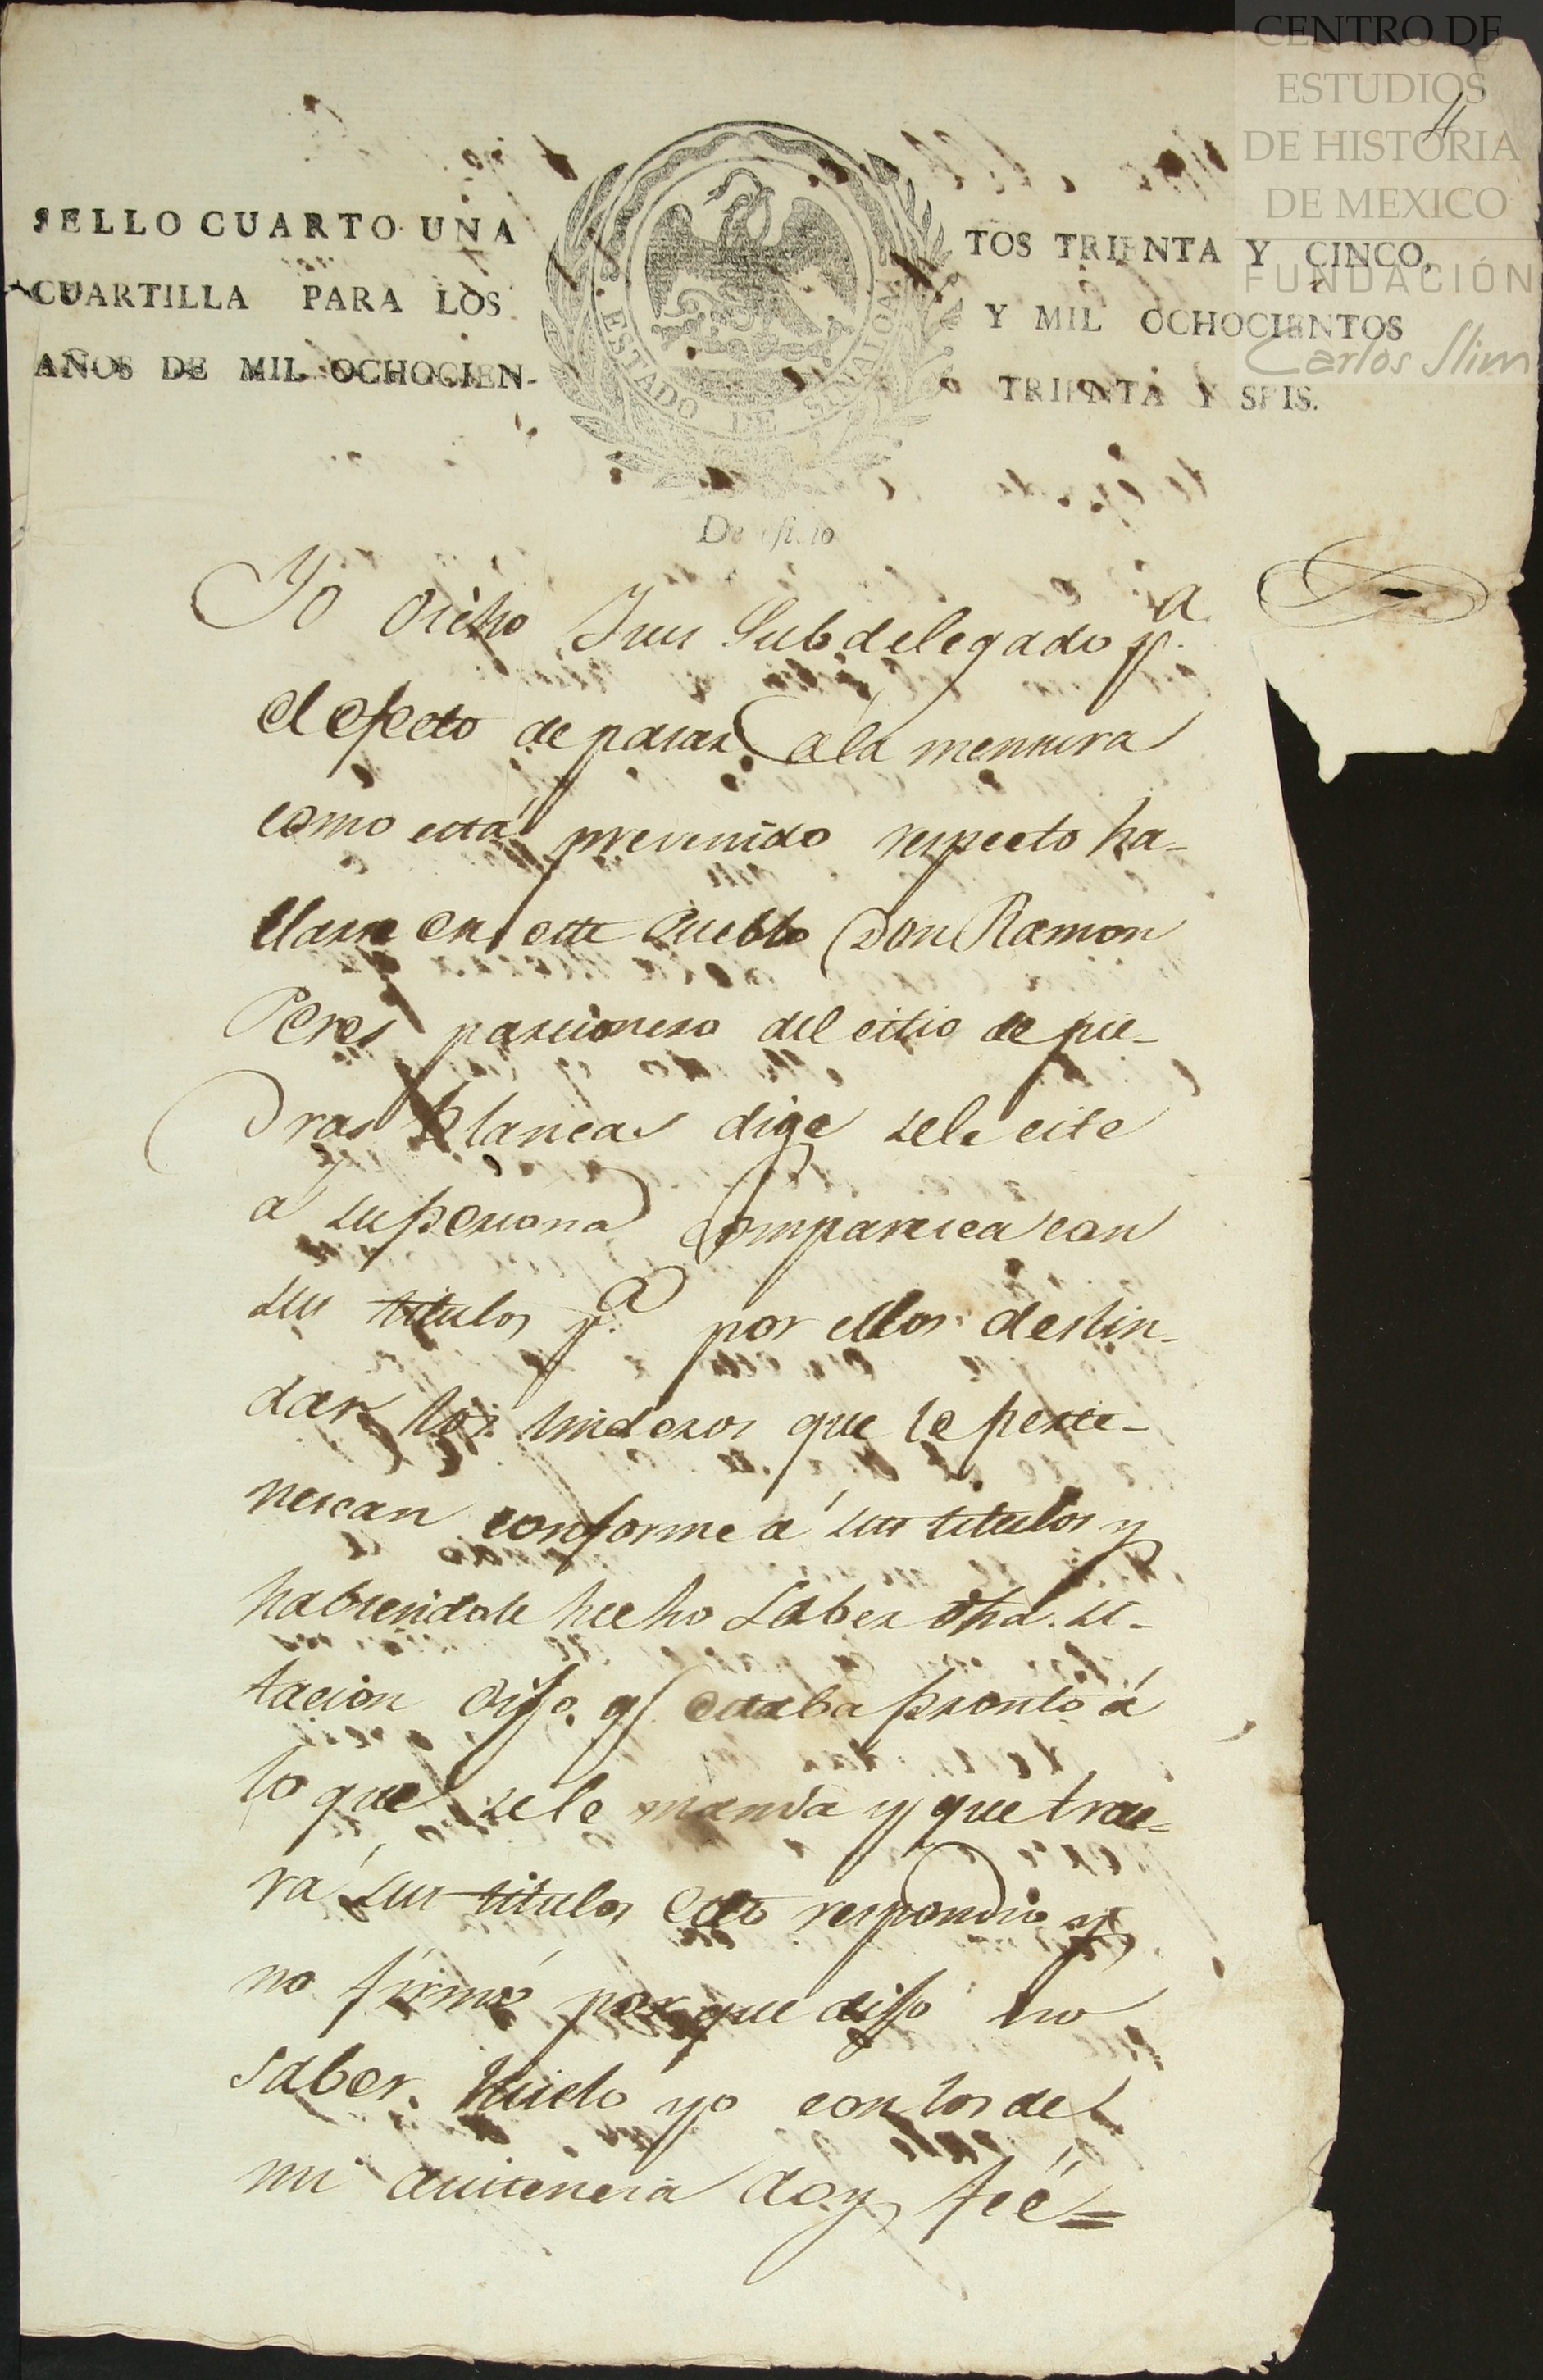 CENTRO DE
ESTUDIOS
DE HISTORIA
DE MEXICO
FUNDACIÓN
Carlos Slim
SELLO CUARTO UNA
CUARTILLA PARA LOS
AÑOS DE MIL OCHOCIEN-
TOS TRIENTA Y CINCO,
Y MIL OCHOCIENTOS
TRIENTA Y SEIS.
ESTADO DE SINALOA
De oficio
Yo dicho Jues Subdelegado p.ª
el efecto de pasar á la mensura
como está prevenido respecto ha-
llarse en este Pueblo Don Ramon
Peres parcionero del citio de pie-
dras blancas dige sele cite
á su persona Comparesca con
sus titulos p.ª por ellos deslin-
dar los linderos que le perte-
nescan conforme á sus titulos y
habiendole hecho saber dha. si-
tacion dijo, q.e estaba pronto á
lo que sele manda y que trae-
rá sus titulos esto respondio y
no firmó por que dijo no
saber. hicelo yo con los de
mi asistencia doy feé=